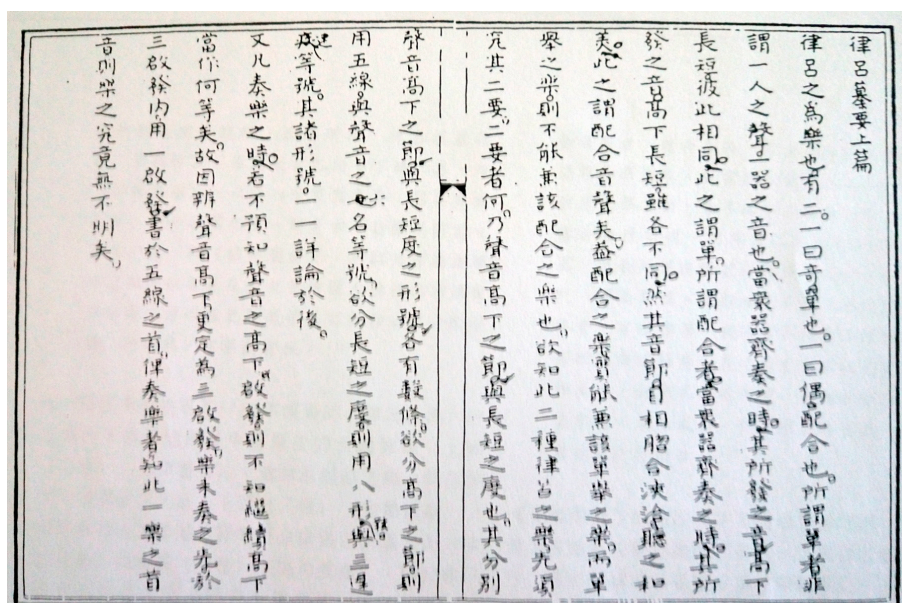 律呂纂要上篇
律呂之為樂也有二一曰奇單也一曰偶配合也所謂單者非
謂一人之聲一器之音也當衆器齊奏之時其所發之音高下
長短彼此相同此之謂單所謂配合者當衆器齊奏之時其所
發之音高下長短雖各不同然其音節自相脗合浹洽聽之和
美此之謂配合音聲美葢配合之樂實能兼該單舉之樂而單
舉之樂則不能兼該配合之樂也欲知此二種律呂之樂先須
究其二要二要者何乃聲音高下之節與長短之度也其分別
聲音高下之節與長短度之形號各有數條欲分高下之節則
用五線與聲音之七名等號欲分長短之度則用八形號與三遲
速等號其諸形號一一詳論於後
又凡奏樂之時若不預知聲音之高下啟發則不知繼續高下
當作何等矣故因辨聲音高下更定為三啟發樂未奏之先於
三啟發內用一啟發書於五線之首俾奏樂者知此一樂之首
音則樂之究竟無不明矣